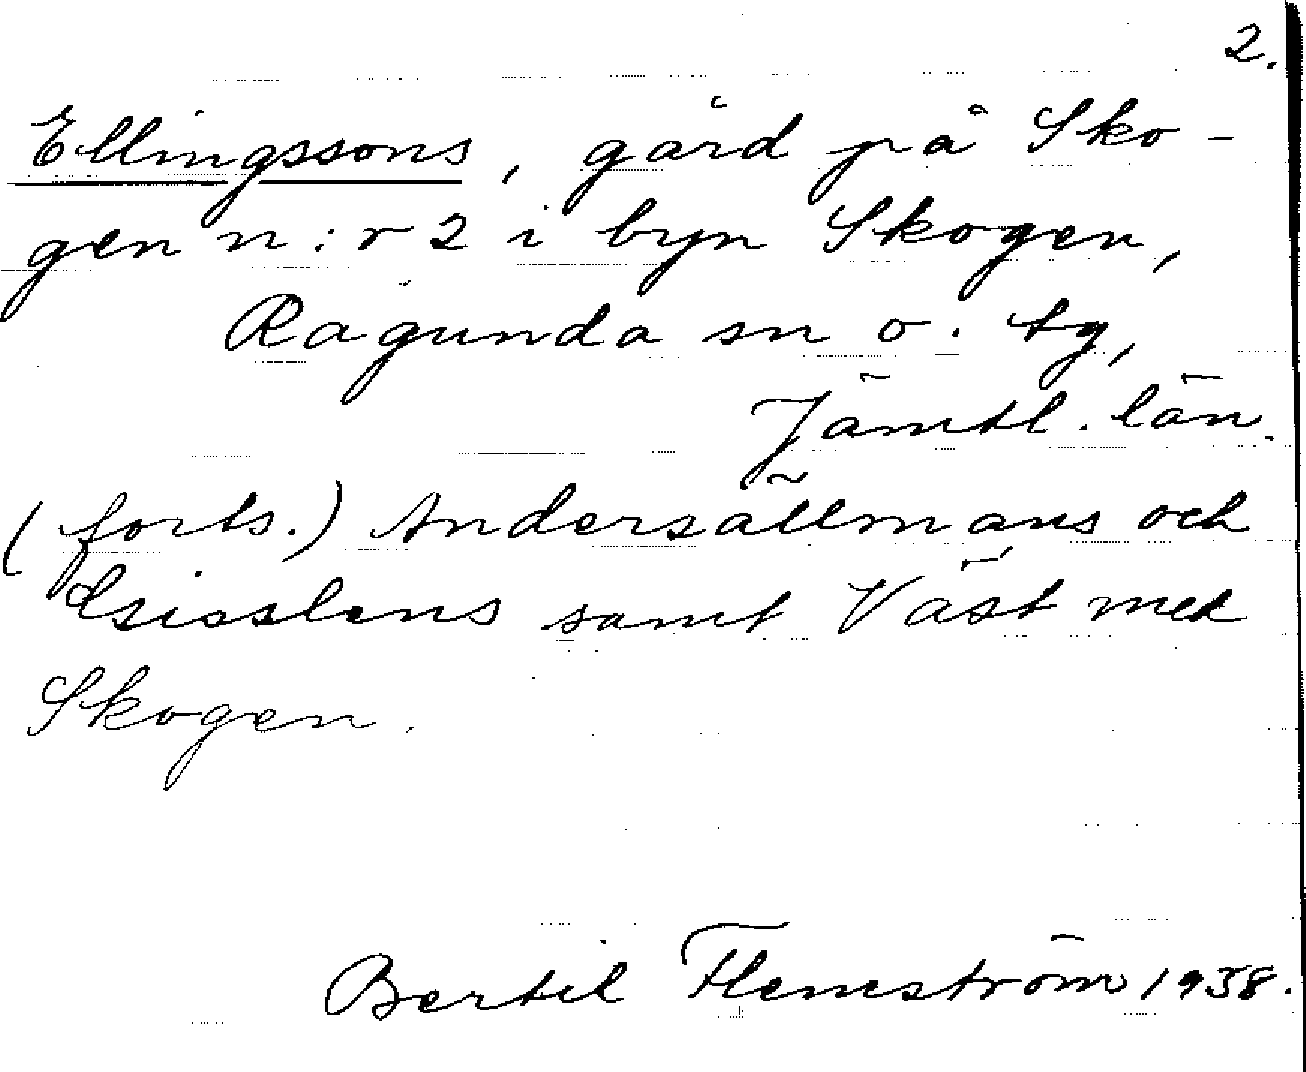 2.
Ellingssons, gård på Sko-
gen n:r 2 i byn Skogen,
Ragunda sn o. tg,
Jämtl. län.
(forts.) Andersällmans och
samt Väst med
Skogen.
Bertil Flemström 1938.